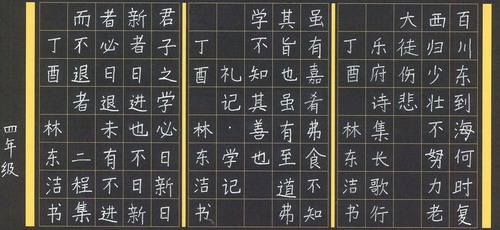 百川东到海何时复
西归少壮不努力老
大徒伤悲
乐府诗集长歌行
丁酉 林东洁书
虽有嘉肴弗食不知
其旨也虽有至道弗
学不知其善也
礼记·学记
丁酉 林东洁书
君子之学必日新日
新者日进也不日新
者必日退未有不进
而不退者 二程集
丁酉 林东洁书
四年级